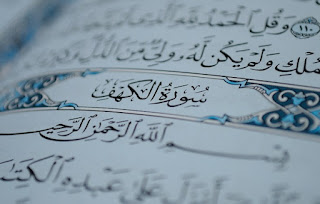 وَقُلِ ٱلْحَمْدُ لِلَّهِ ١١٠
ٱلْمُلْكِ وَلَمْ يَكُن لَّهُۥ وَلِىٌّ مِّنَ ٱلذُّلِّ وَكَبِّرْهُ
سُورَةُ الكَهْفِ
بِسْمِ ٱللَّهِ ٱلرَّحْمَٰنِ ٱلرَّحِيمِ
أَنزَلَ عَلَىٰ عَبْدِهِ ٱلْكِتَٰبَ